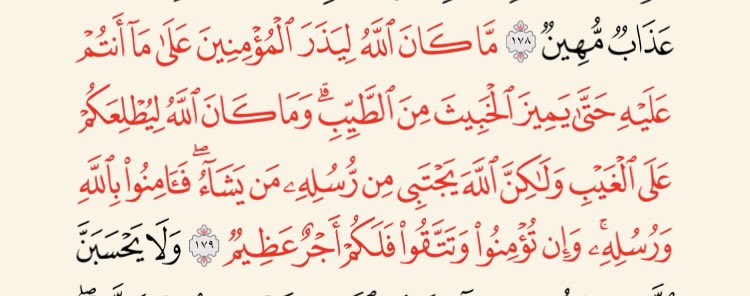 عَذَابٌ مُّهِينٌ ١٧٨ مَّا كَانَ ٱللَّهُ لِيَذَرَ ٱلْمُؤْمِنِينَ عَلَىٰ مَآ أَنتُمْ
عَلَيْهِ حَتَّىٰ يَمِيزَ ٱلْخَبِيثَ مِنَ ٱلطَّيِّبِ ۗ وَمَا كَانَ ٱللَّهُ لِيُطْلِعَكُمْ
عَلَى ٱلْغَيْبِ وَلَـٰكِنَّ ٱللَّهَ يَجْتَبِى مِن رُّسُلِهِۦ مَن يَشَآءُ ۖ فَـَٔامِنُوا۟ بِٱللَّهِ
وَرُسُلِهِۦ ۚ وَإِن تُؤْمِنُوا۟ وَتَتَّقُوا۟ فَلَكُمْ أَجْرٌ عَظِيمٌ ١٧٩ وَلَا يَحْسَبَنَّ